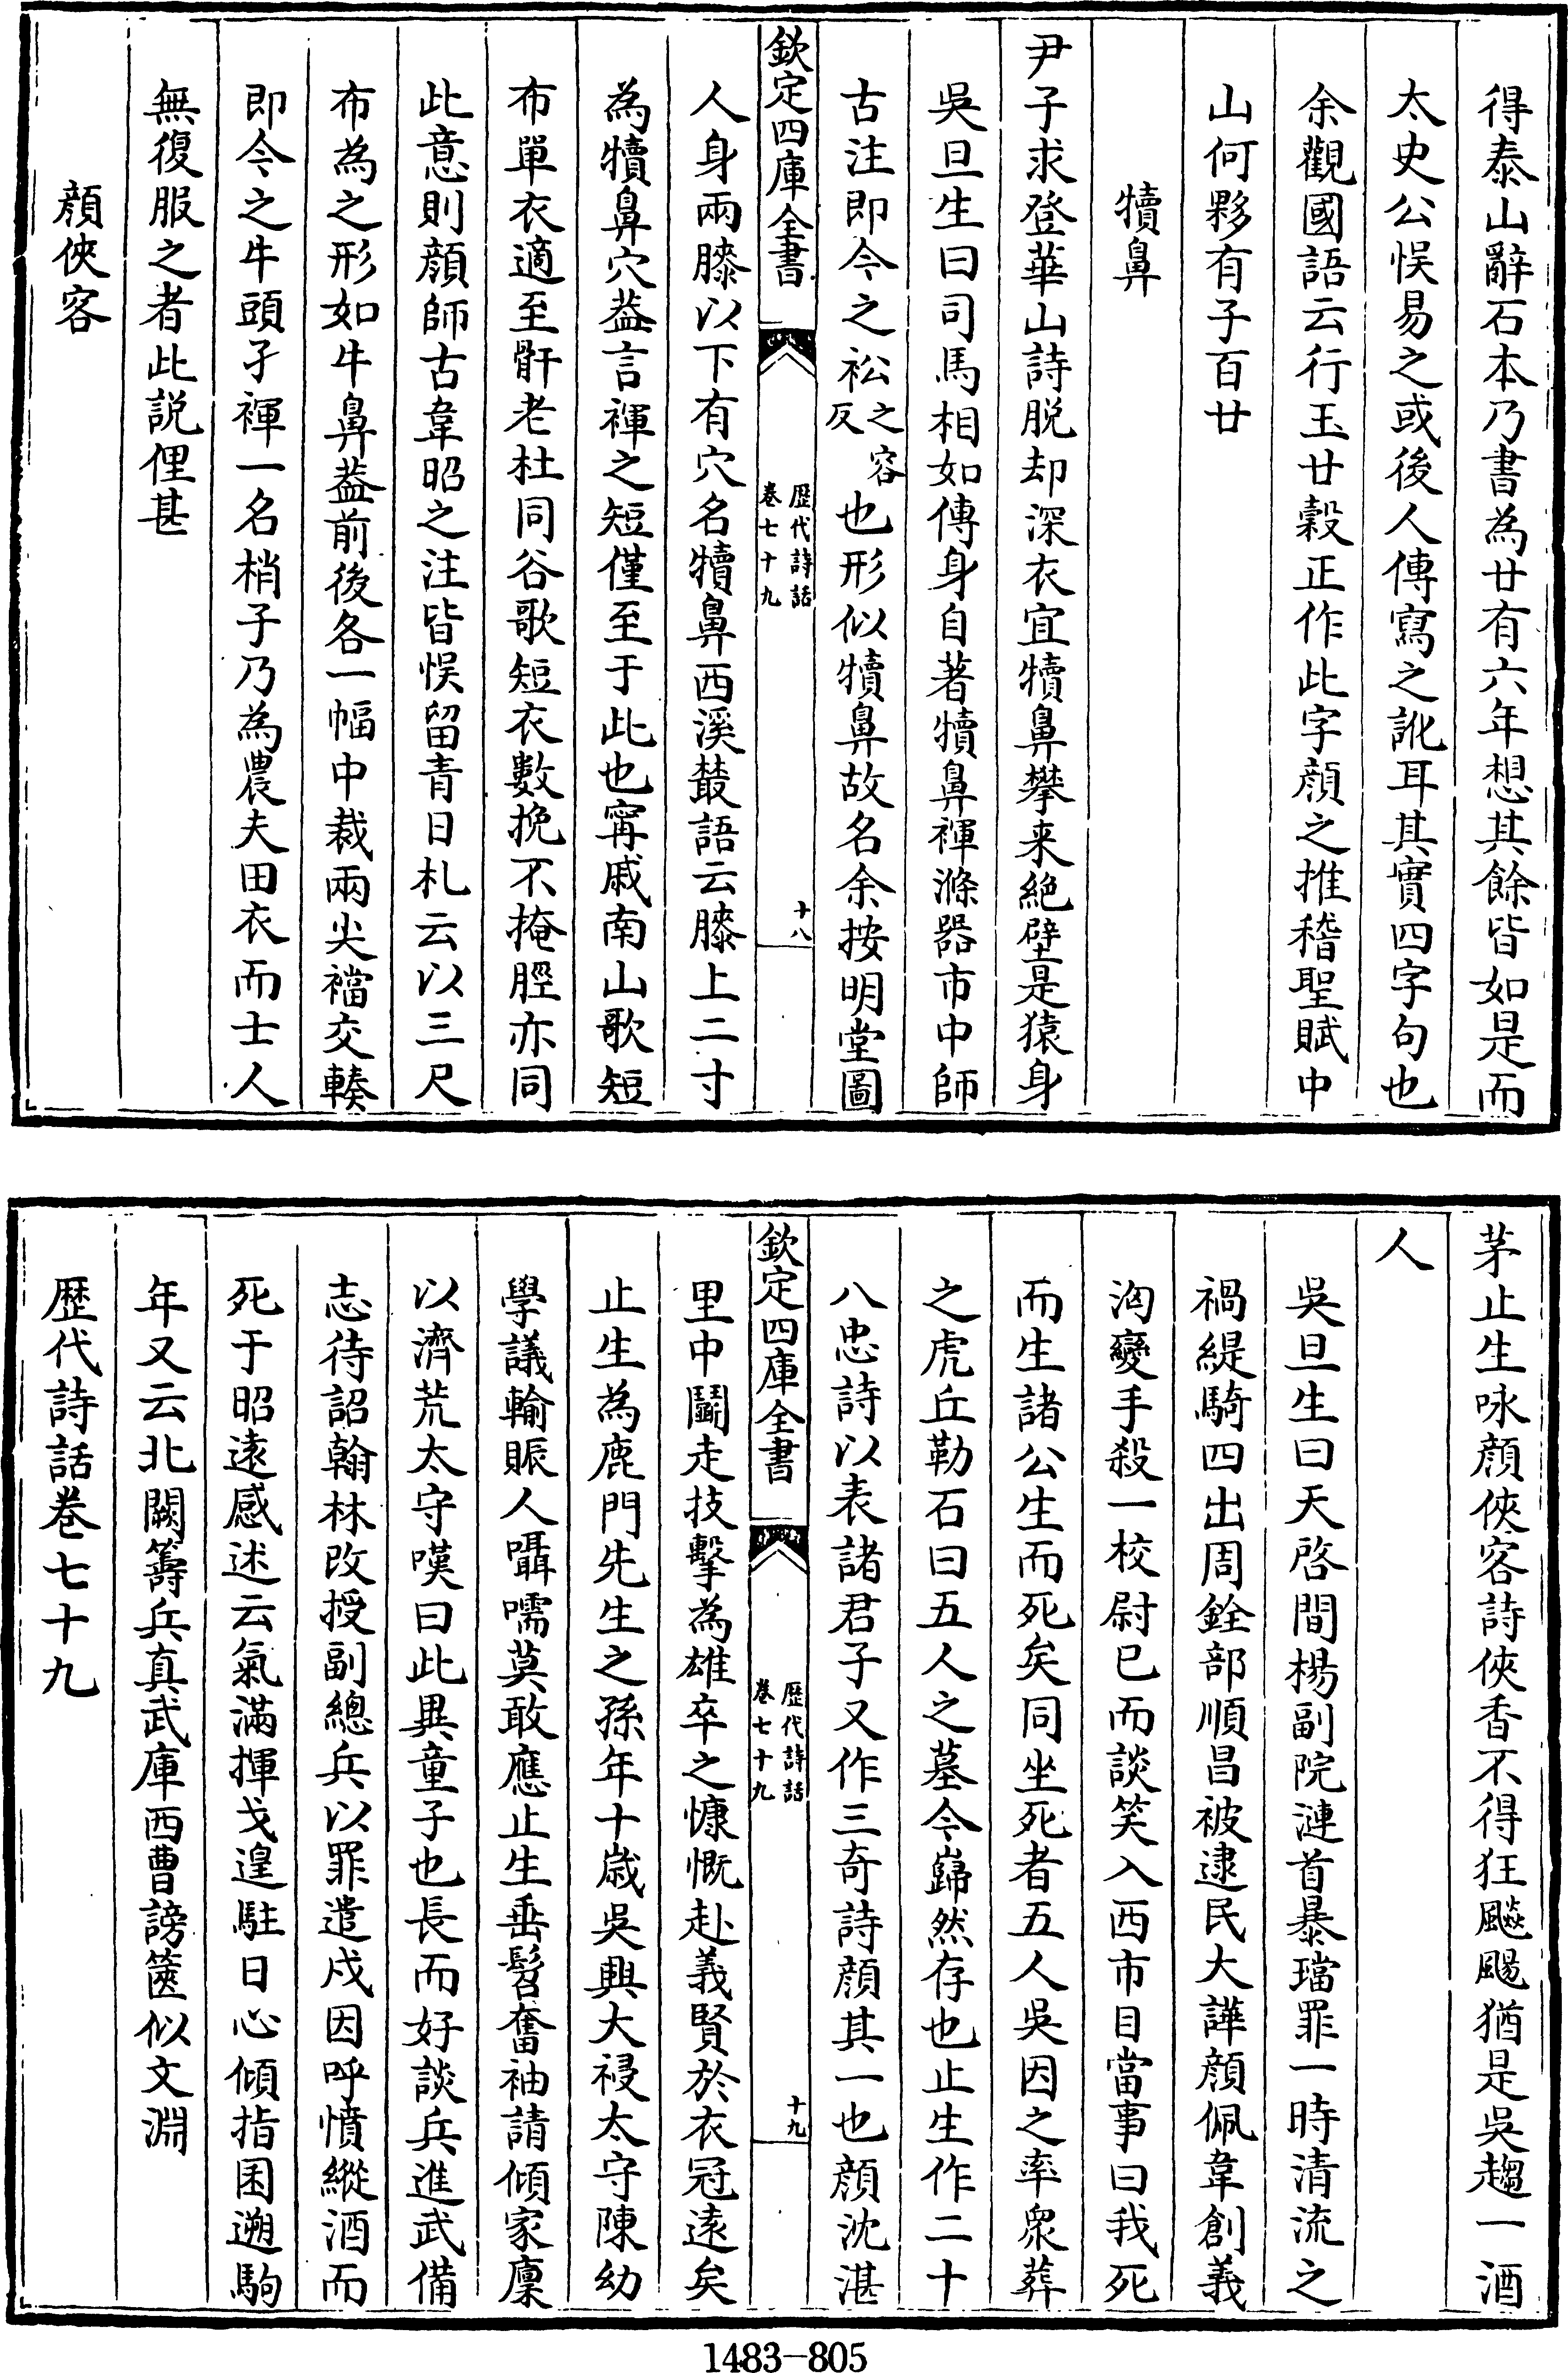 得泰山辭石本乃書為廿有六年想其餘皆如是而
太史公悞易之或後人傳寫之訛耳其實四字句也
余觀國語云行玉廿瑴正作此字顔之推稽聖賦中
山何夥有子百廿
犢鼻
尹子求登華山詩脱却深衣宜犢鼻攀来絶壁是猿身
吳旦生曰司馬相如傳身自著犢鼻褌滌器市中師
古注即今之衳之容反也形似犢鼻故名余按明堂圖
欽定四庫全書
歴代詩話
卷七十九
十八
人身兩膝以下有穴名犢鼻西溪叢語云膝上二寸
為犢鼻穴葢言褌之短僅至于此也甯戚南山歌短
布單衣適至骭老杜同谷歌短衣數挽不掩脛亦同
此意則顔師古韋昭之注皆悞留青日札云以三尺
布為之形如牛鼻葢前後各一幅中裁兩尖襠交輳
即今之牛頭子褌一名梢子乃為農夫田衣而士人
無復服之者此説俚甚
顔俠客
茅止生咏顔俠客詩俠香不得狂飈颺猶是吳趨一酒
人
吳旦生曰天啓間楊副院漣首暴璫罪一時清流之
禍緹騎四出周銓部順昌被逮民大譁顔佩韋創義
洶變手殺一校尉已而談笑入西市目當事曰我死
而生諸公生而死矣同坐死者五人吳因之率衆葬
之虎丘勒石曰五人之墓今巋然存也止生作二十
八忠詩以表諸君子又作三奇詩顔其一也顔沈湛
欽定四庫全書
歴代詩話
卷七十九
十九
里中鬭走技擊為雄卒之慷慨赴義賢於衣冠遠矣
止生為鹿門先生之孫年十歳吳興大祲太守陳幼
學議輸賑人囁嚅莫敢應止生垂髫奮袖請傾家廩
以濟荒太守嘆曰此異童子也長而好談兵進武備
志待詔翰林改授副總兵以罪遣戍因呼憤縱酒而
死于昭遠感述云氣滿揮戈遑駐日心傾指囷遡駒
年又云北闕籌兵真武庫西曹謗篋似文淵
歴代詩話卷七十九
1483-805